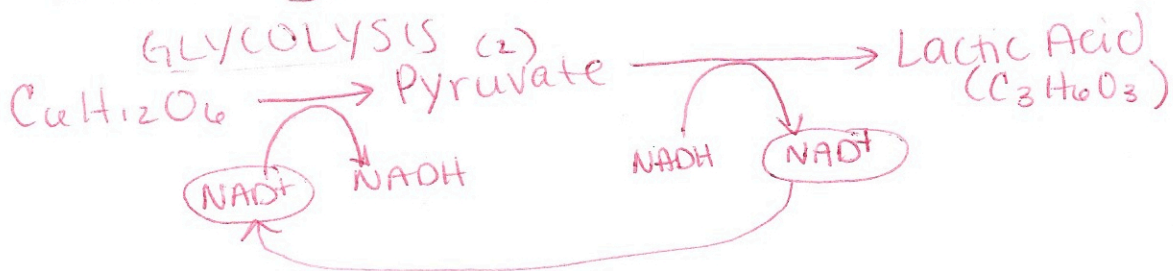 GLYCOLYSIS (2)
C6H12O6 → Pyruvate → Lactic Acid
(C3H6O3)
NAD+ NADH NADH NAD+